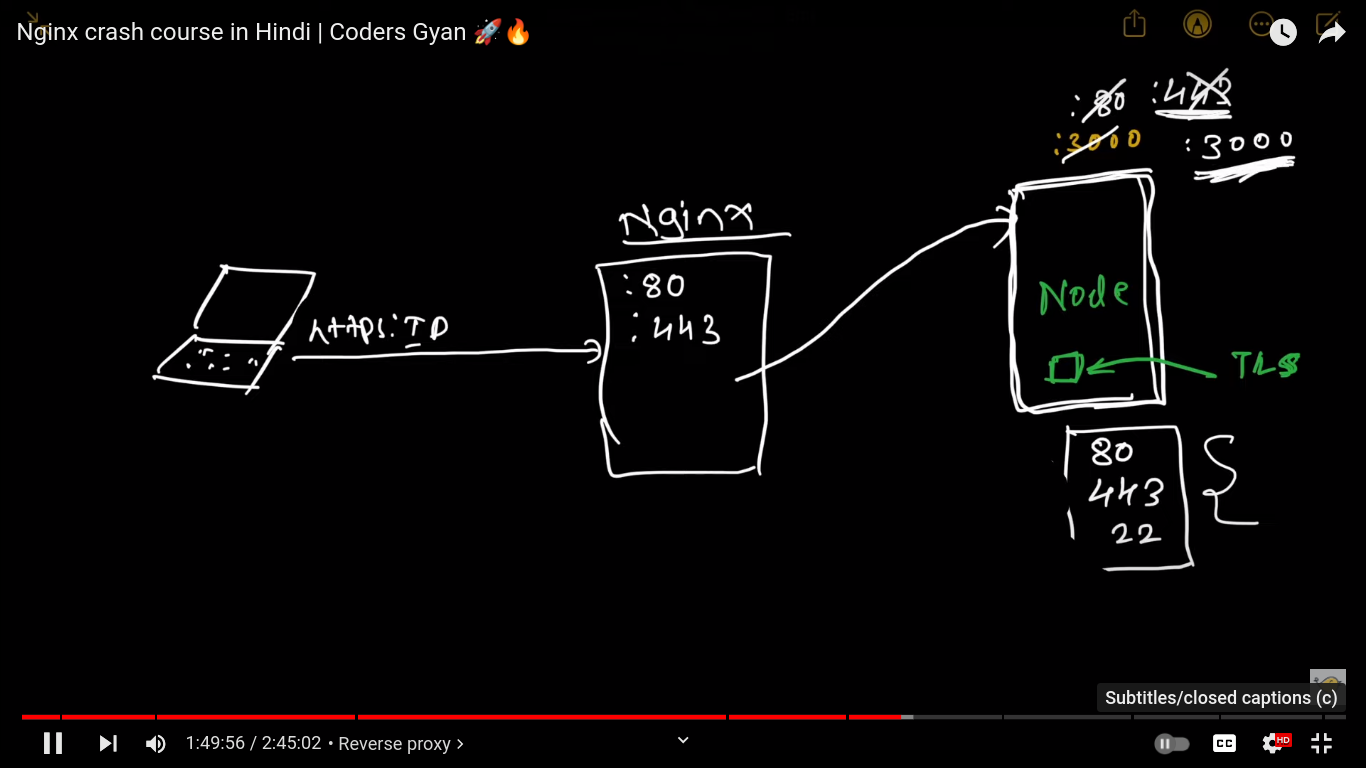 Nginx crash course in Hindi | Coders Gyan 🚀🔥
:80 :443
:3000 :3000
Nginx
:80
:443
https: IP
Node
TLS
80
443
22
Subtitles/closed captions (c)
1:49:56 / 2:45:02 • Reverse proxy >
CC
HD